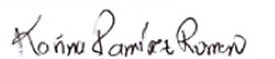 Karina Ramirez Romero